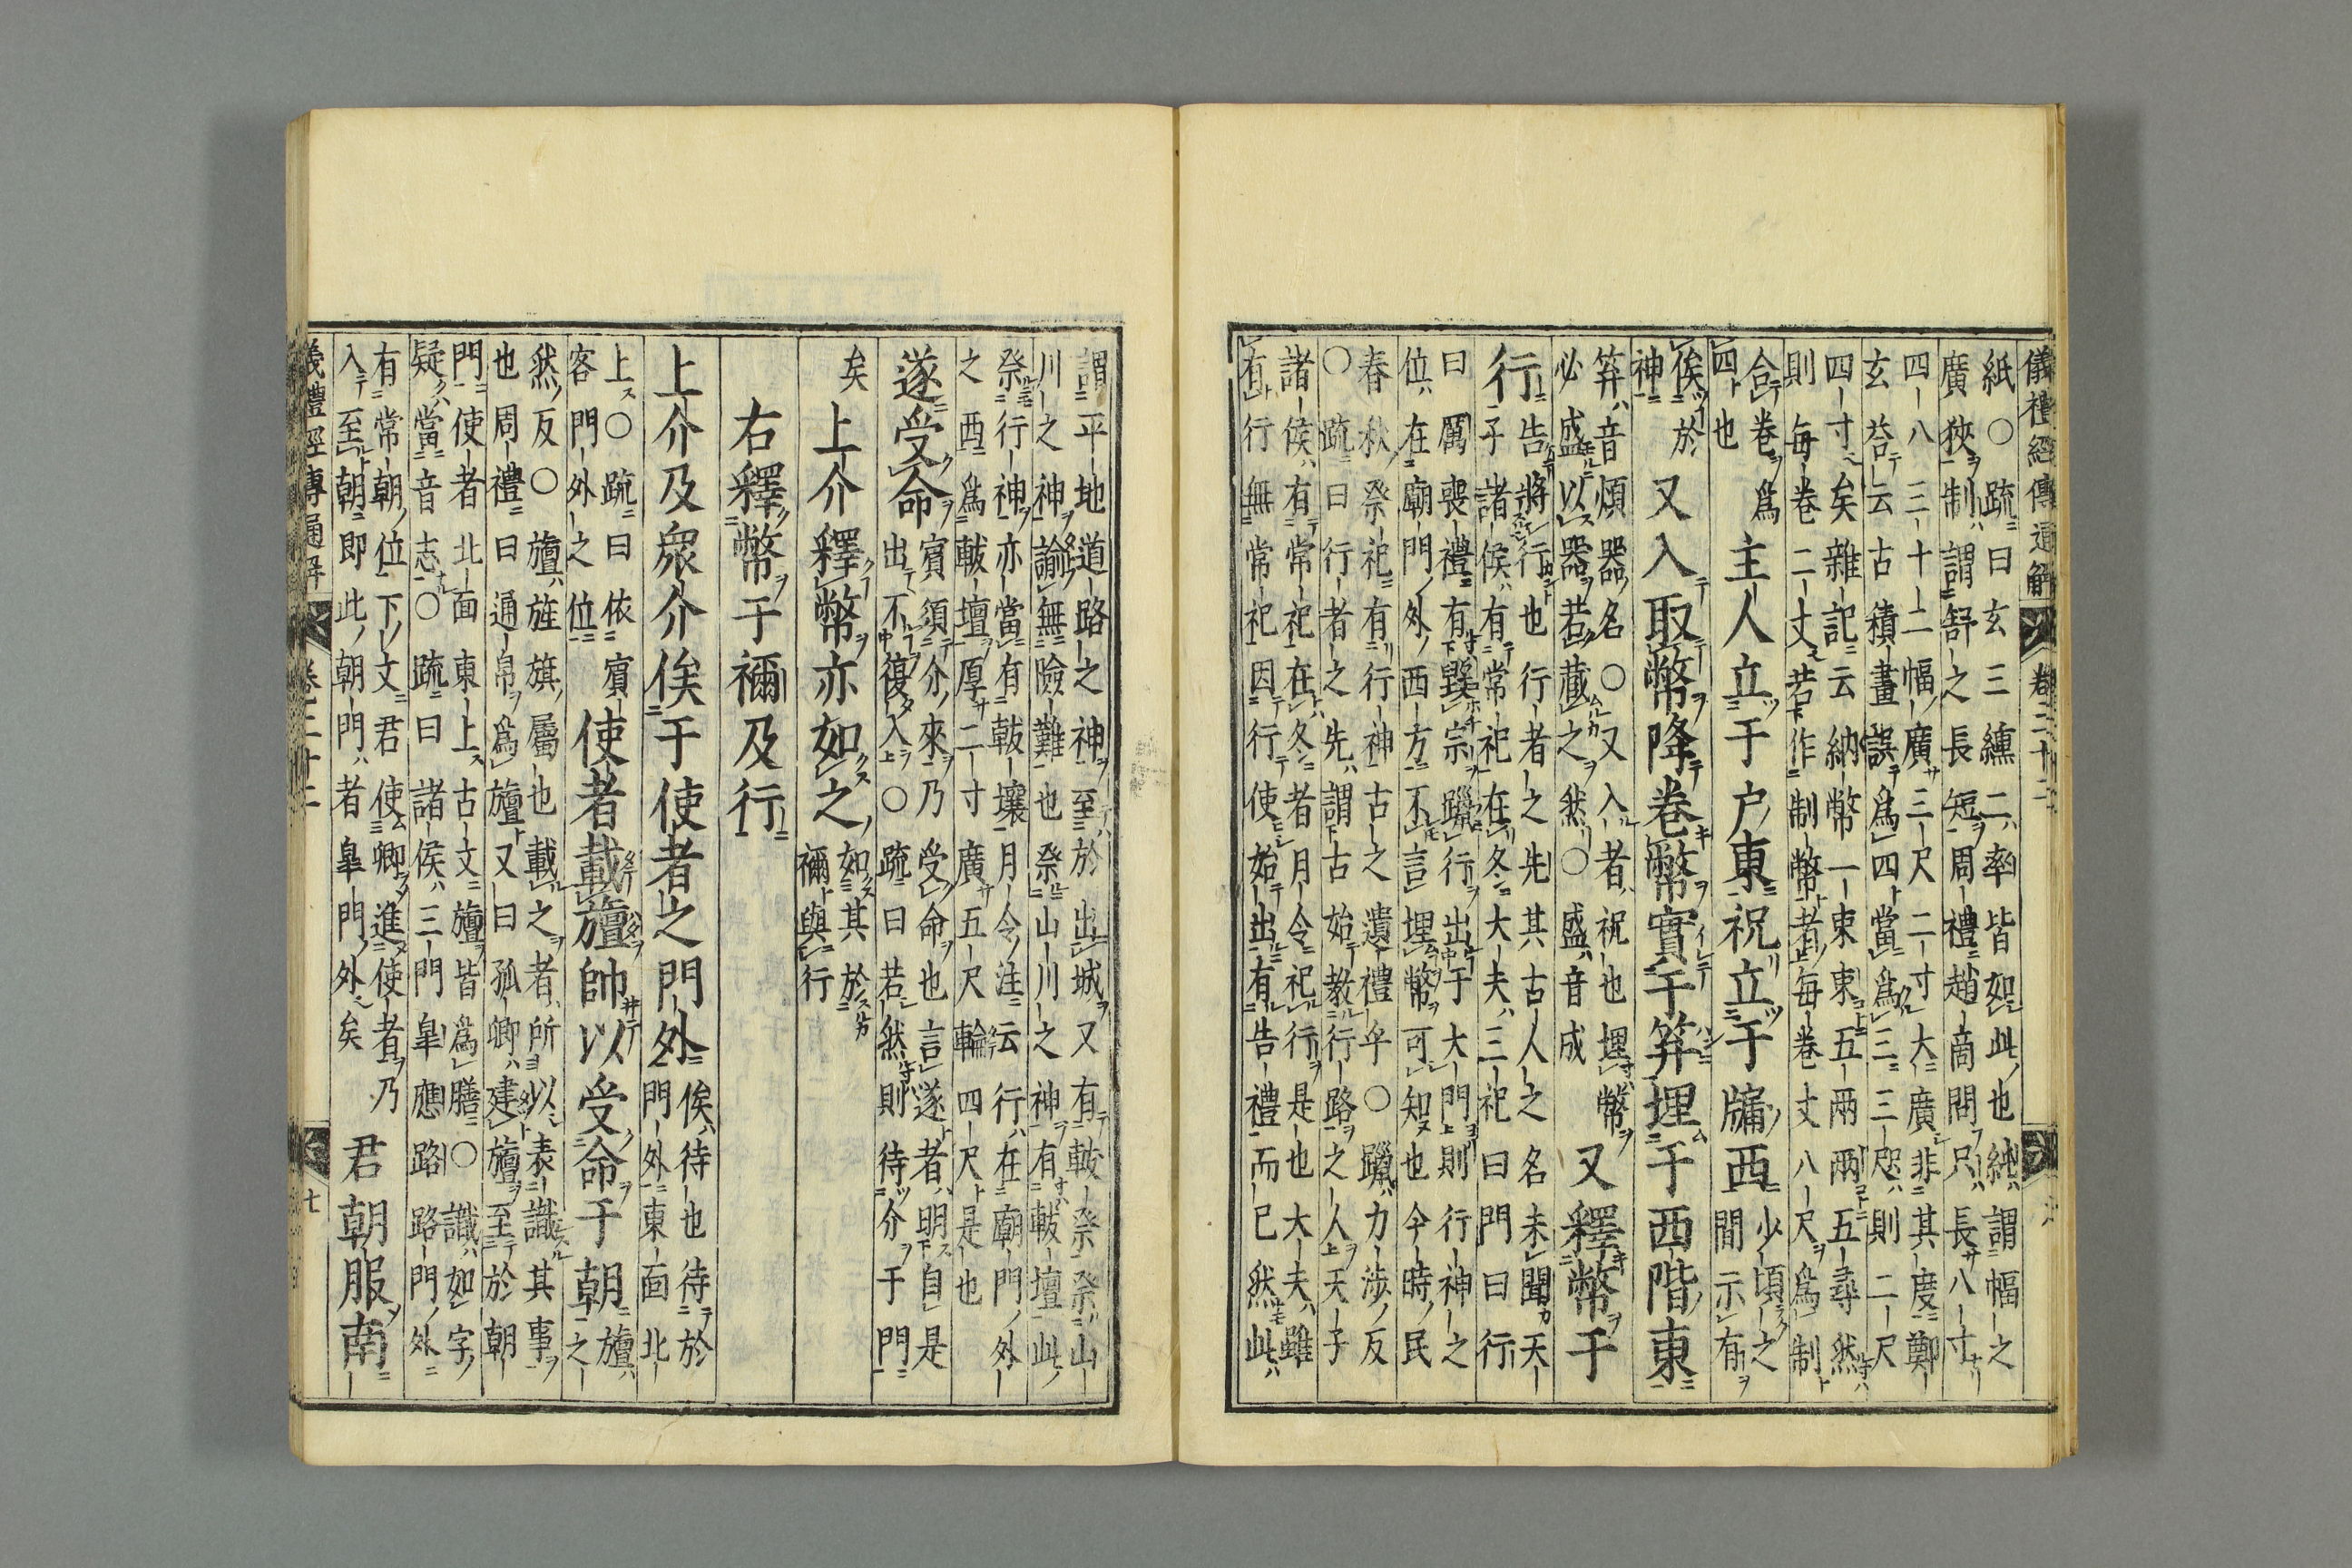 儀禮經傳通解 卷二十二 六
紙○疏曰玄三纁二率皆如此也純謂幅之
廣狹制謂舒之長短周禮趙商問只長八寸
四八三十二幅廣三尺二寸大廣非其度鄭
玄荅云古積畫誤爲四當爲三三咫則二尺
四寸矣雜記云納幣一束束五兩兩五尋然
則每卷二丈若作制幣者每卷丈八尺爲制
合卷爲
四也
主人立于户東祝立于牖西
少頃之
間示有
俟於
神
又入取幣降卷幣實于笲埋于西階東
笲音煩器名○又入者祝也埋幣
必盛以器若藏之然○盛音成
又釋幣于
行
告將行也行者之先其古人之名未聞天
子諸侯有常祀在冬大夫三祀曰門曰行
曰厲喪禮有毀宗躐行出于大門則行神之
位在廟門外西方不言埋幣可知也今時民
春秋祭祀有行神古之遺禮乎○躐力涉反
○疏曰行者之先謂古始教行路之人天子
諸侯有常祀在冬者月令祀行是也大夫雖
有行無常祀因行使始出有告禮而已然此
謂平地道路之神至於出城又有軷祭祭山
川之神諭無險難也祭山川之神有軷壇此
祭行神亦當有軷壤月令注云行在廟門外
之西爲軷壇厚二寸廣五尺輪四尺是也
遂受命
賓須介來乃受命也言遂者明自是
出不復入○疏曰若然則待介于門
矣
上介釋幣亦如之
如其於
禰與行
右釋幣于禰及行
上介及衆介俟于使者之門外
俟待也待於
門外東面北
上○疏曰依賓
客門外之位
使者載旜帥以受命于朝
旜
之
然反○旜旌旗屬也載之者所以表識其事
也周禮曰通帛爲旜又曰孤卿建旜至於朝
門使者北面東上古文旜皆爲膳○識如字
疑當音志○疏曰諸侯三門皐應路路門外
有常朝位下文君使卿進使者乃
入至朝即此朝門者皐門外矣
君朝服南
儀禮經傳通解 卷二十二 七